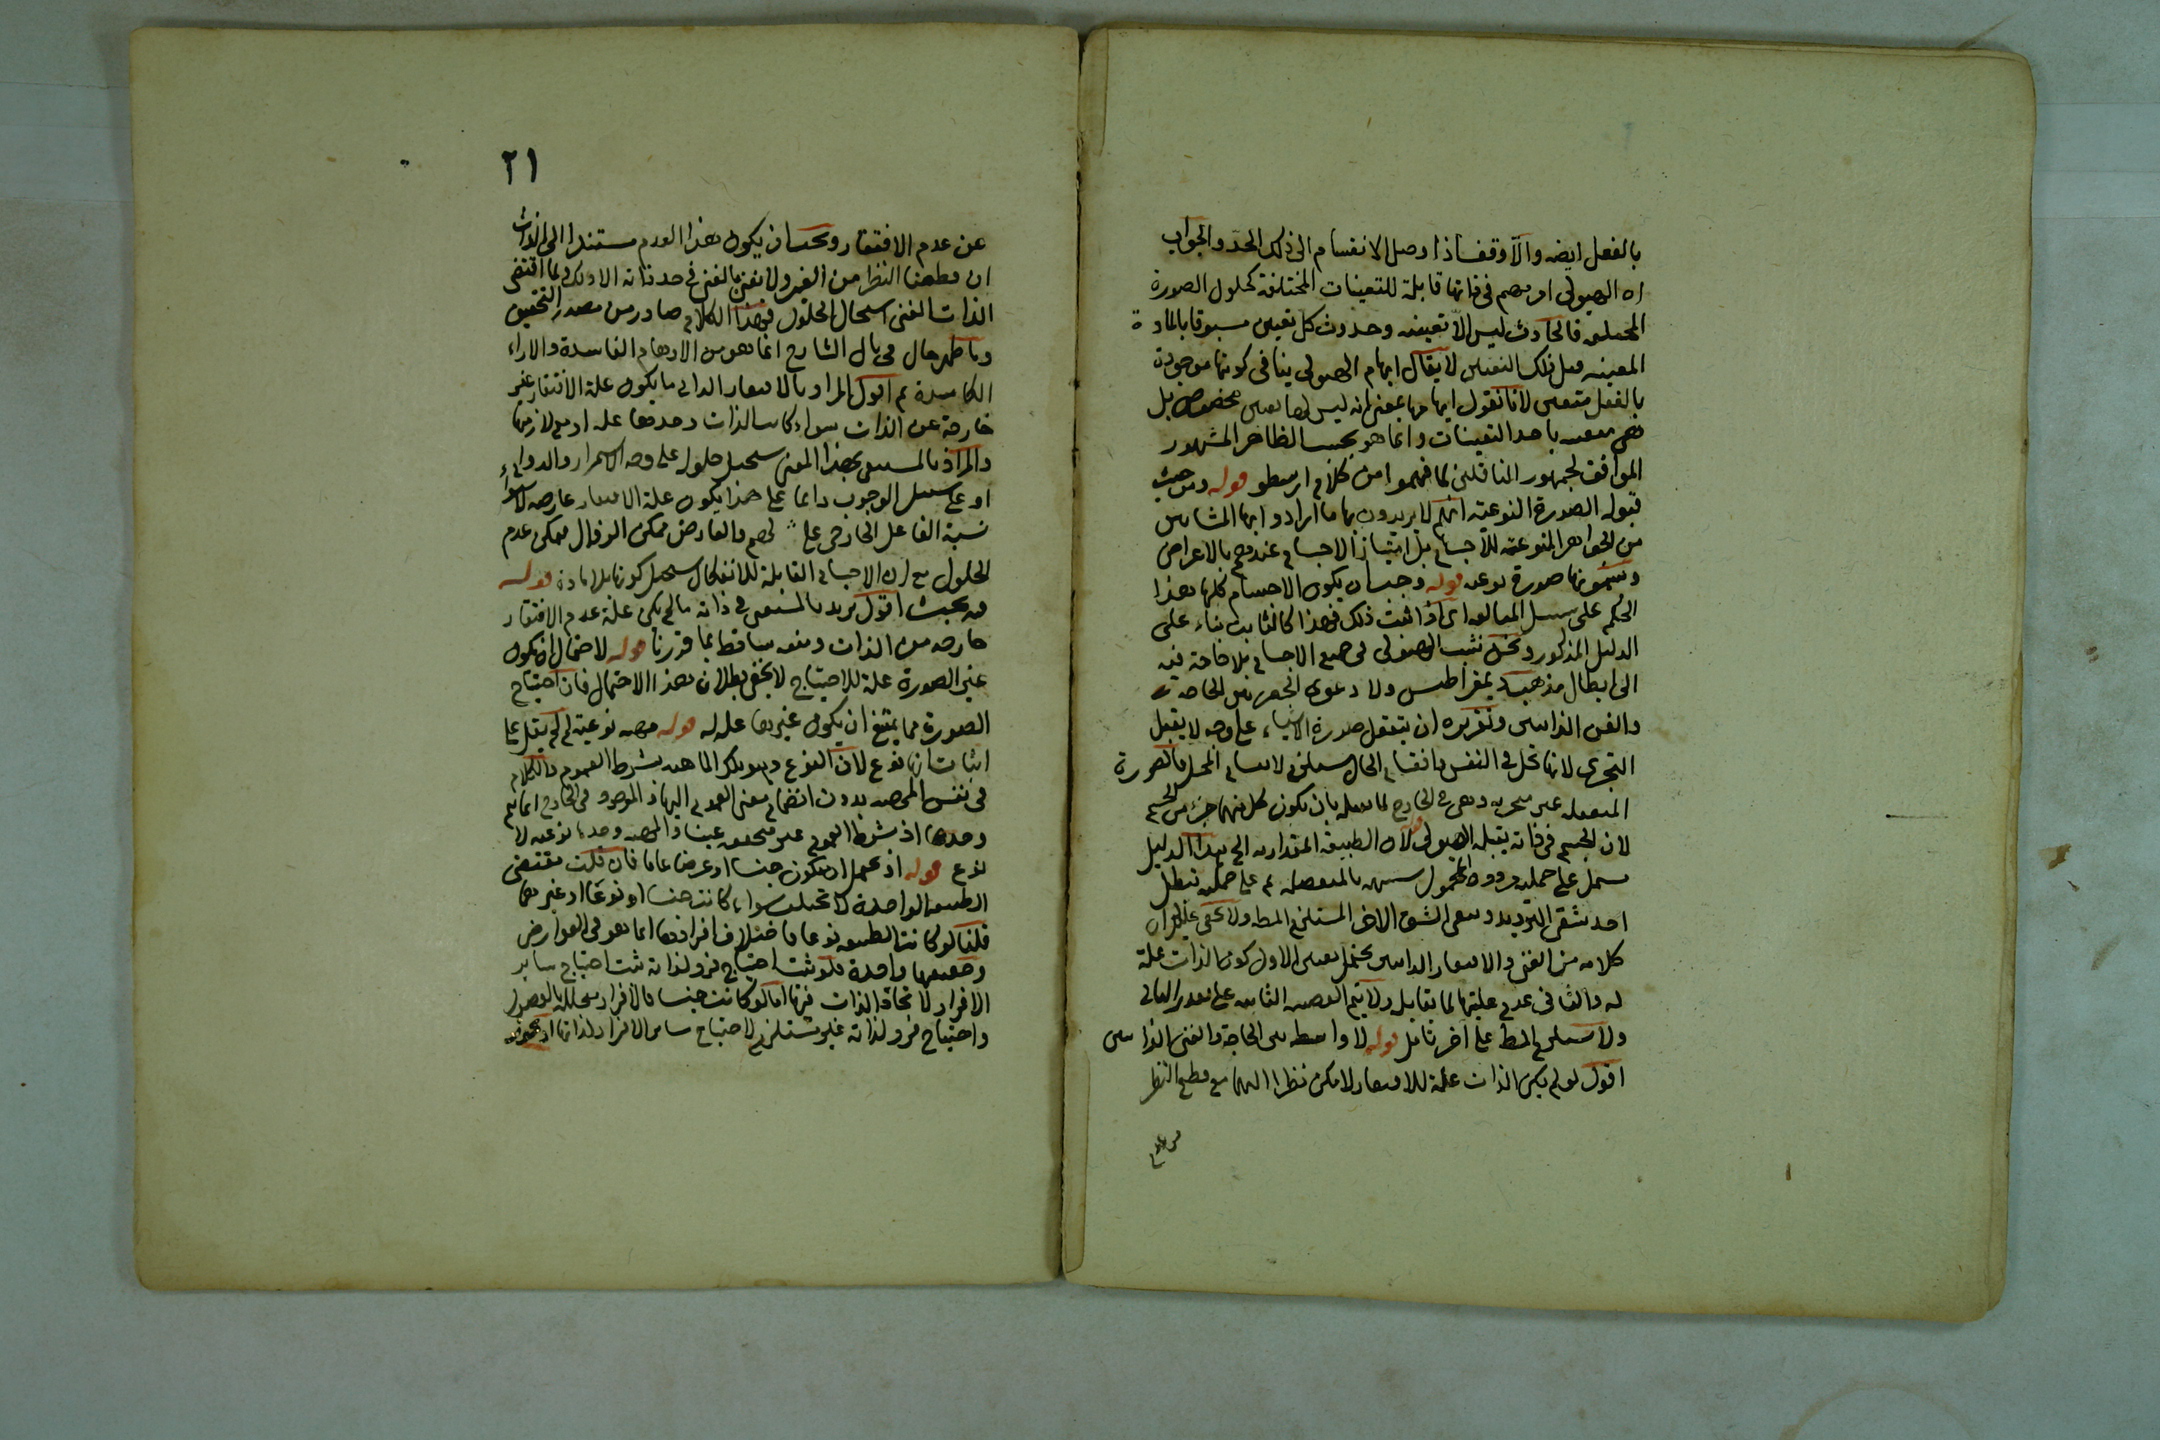 بالفعل ايضه والا وقف اذا وصل الانقسام الى ذلك الحد والجواب
ان الهيولى امر مبهم في ذاتها قابلة للتعينات المختلفة كحلول الصورة
فالحادث ليس الا تعينه وحدوث كل تعين مسبوق بالمادة
المعينه قبل ذلك التعين لا يقال ابهام الهيولى ينافى كونها موجودة
بالفعل متعين لانا نقول ابهامها بمعنى انه ليس لها تعين مخصوص بل
هى متعينه باحد التعينات وانما هو بحسب الظاهر المشهور
الموافق لجمهور الناقلين لما فهموا من كلام ارسطو قوله ومن حيث
قبوله الصورة النوعية انهم لا يريدون بها ما ارادوا بها المشائين
من الجواهر المنوعة للاجسام بل امتياز الاجسام عندهم بالاعراض
ويسمونها صورة نوعيه قوله وجب ان يكون الاجسام كلها هذا
الحكم على سبيل المبالغة اى اذا ثبت ذلك فهذا كالثابت بناء على
الدليل المذكور ونحن نثبت الهيولى في جميع الاجسام بلا حاجة فيه
الى ابطال مذهب ديمقراطيس ولا دعوى
والغنى الذاتيين وتقريره ان يتعقل صورة الاشياء على وجه لا يقبل
التجزى لانها تحل في النفس وانقسام الحال يستلزم لانقسام المحل فالصورة
المتعقله غير متجزيه وهى في الخارج بان يكون كل منهما جزء من الجسم
لان الجسم في ذاته يقبله الهيولى قوله لان الطبيعة المقداريه الى هذا الدليل
يشتمل على حمليه مرددة المحمول شبيهه بالمنفصله ثم على حمليه تبطل
احد شقى الترديد وبقى الشق الاخر المستلزم للمط ولا يخفى عليك ان
كلامه من الغنى والافتقار الذاتيين يحتمل معنيين الاول كون الذات علة
له والثانى عدم عليتها لما يقابله ولا يتم القضيه الثانيه على تقدير الثانى
ولا يستلزم المط على اخر تامل قوله لا واسطه بين الحاجة والغنى الذاتيين
اقول لو لم يكن الذات علة للافتقار لامكن نظرا اليها مع قطع النظر
عن عدم
٢١
عن عدم الافتقار وبحسب ان يكون هذا العدم مستندا الى الذات
ان قطعنا النظر من الغير ولا نعنى بالغنى في حد ذاته الا ذلك ولما اقتضى
الذات الغنى استحال الحلول فهذا الكلام صادر من مصدر التحقيق
وما ظهر حال في بال الشارح انما هو من الاوهام الفاسدة والاراء
الكاسدة ثم اقول المراد بالافتقار الذاتى ما يكون علة الافتقار غير
خارجة عن الذات سواء كانت الذات وحدها علة او مع لازمها
والمراد بالمستغنى بهذا المعنى يستحيل حلوله على وجه الاستمرار والدوام
او على سبيل الوجوب دائما على هذا يكون علة الافتقار عارضه لاستواء
نسبة الفاعل الخارجى على والعارض ممكن الزوال فيمكن عدم
الحلول مع ان الاجسام القابلة للانفكاك يستحيل كونها بلا مادة قوله
فيه بحث اقول نريد بالمستغنى في ذاته ما لم يكن علة عدم الافتقار
خارجه من الذات ومنعه ساقط بما قررنا قوله لاحتمال ان يكون
غير الصورة علة للاحتياج لا يخفى بطلان هذا الاحتمال فان احتياج
الصورة مما يمتنع ان يكون غيرها علة له قوله مهيه نوعية لم لم يقل على
اثبات انها نوع لان النوع وهو تلك الماهيه بشرط العموم والكلام
في نفس المهيه بدون انضمام معنى العموم اليها اذ الموجود في الخارج انما هى
وحدها اذ بشرط العموم غير متحققه عينا والمهيه وحدها نوعيه لا
نوع قوله اذ يحتمل ان تكون جنسا او عرضا عاما فان قلت مقتضى
الطبيعه الواحدة لا تختلف سواء كانت جنسا او نوعا او غيرهما
قلنا لو كانت الطبيعه نوعا فاختلاف افرادها انما هو في العوارض
وحقيقتها واحدة فلو ثبت احتياج فرد لذاته ثبت احتياج سائر
الافراد لاتحاد الذات فيها اما لو كانت جنسا فالافراد مختلفه بالفصول
واحتياج فرد لذاته غير مستلزم لاحتياج سائر الافراد لذاتها